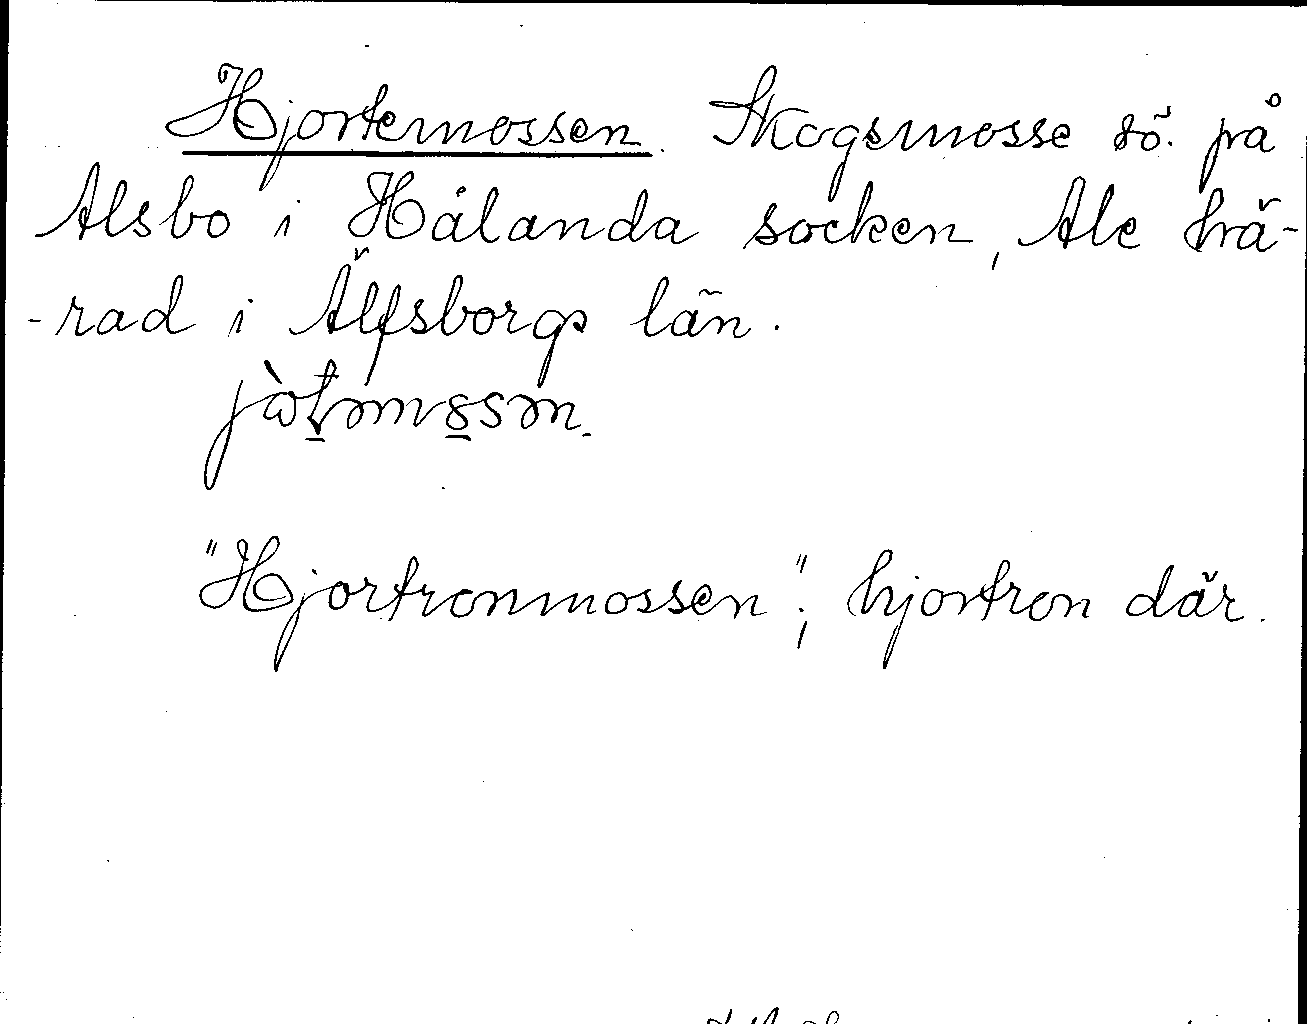 Hjortemossen. Skogsmosse sö. på
Alsbo i Hålanda socken, Ale hä-
-rad i Älfsborgs län.
"Hjortronmossen"; hjortron där.